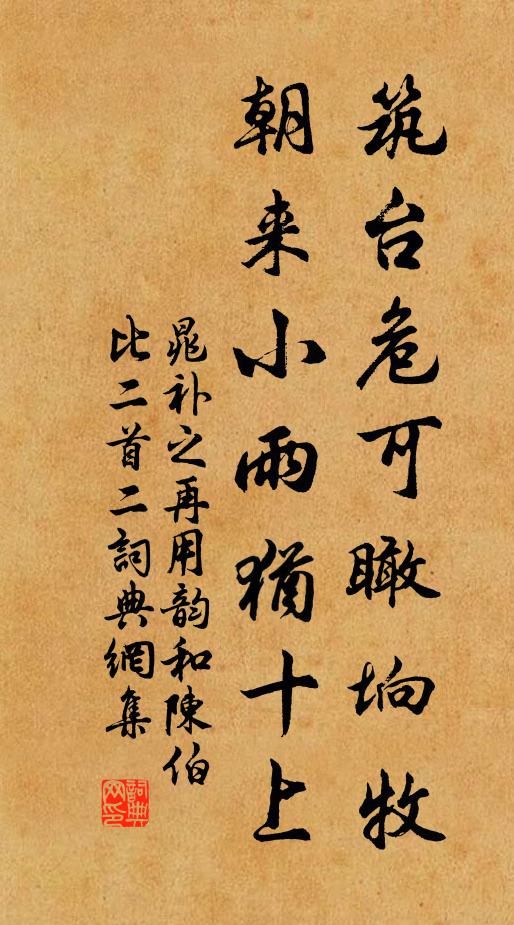 筑台危可瞰垧牧
朝来小雨犹十上
晁补之再用韵和陳伯
比二首二詞典網集
詞典网印